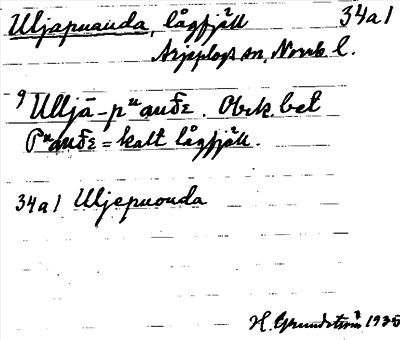 Uljapuauda, lågfjäll 34a1
Arjeplogs sn, Norrb. l.
Ulljā-pᵘauδε. Obek. bet
Pᵘauδε = kalt lågfjäll.
34a1 Uljepuouda
H. Grundström 1935